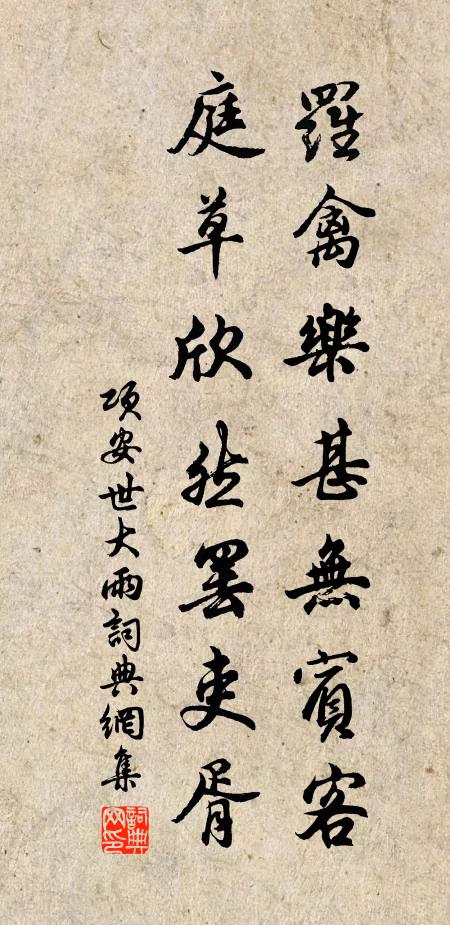 羅禽樂甚無賓客
庭草欣然罷吏胥
項安世大雨詞典網集
詞典网印